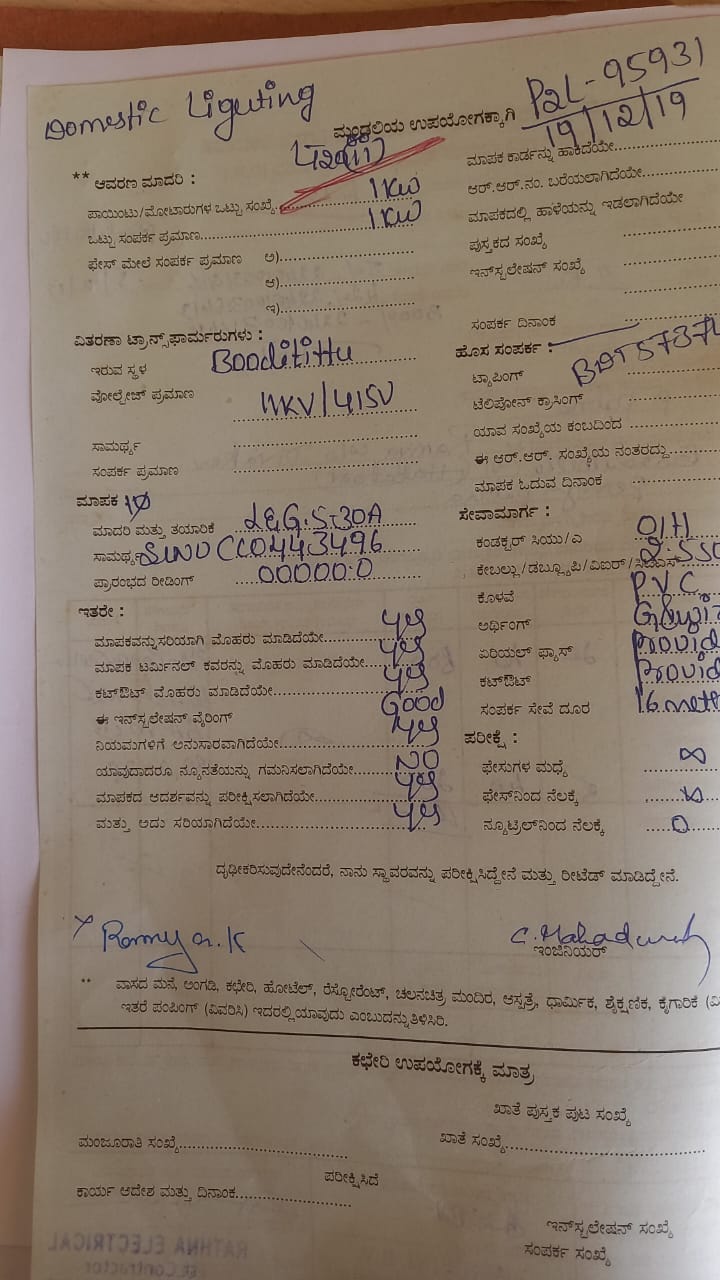 Domestic Liguting
ಮಂಡಲಿಯ ಉಪಯೋಗಕ್ಕಾಗಿ
P2L-95931
19/12/19
** ಆವರಣ ಮಾದರಿ :
ಪಾಯಿಂಟು/ಮೋಟಾರುಗಳ ಒಟ್ಟು ಸಂಖ್ಯೆ 1KW
ಒಟ್ಟು ಸಂಪರ್ಕ ಪ್ರಮಾಣ 1KW
ಫೇಸ್ ಮೇಲೆ ಸಂಪರ್ಕ ಪ್ರಮಾಣ ಅ)
ಆ)
ಇ)
ವಿತರಣಾ ಟ್ರಾನ್ಸ್‌ಫಾರ್ಮರುಗಳು :
ಇರುವ ಸ್ಥಳ Booditittu
ವೋಲ್ಟೇಜ್ ಪ್ರಮಾಣ 11KV/415V
ಸಾಮರ್ಥ್ಯ
ಸಂಪರ್ಕ ಪ್ರಮಾಣ
ಮಾಪಕ 1Ø
ಮಾದರಿ ಮತ್ತು ತಯಾರಿಕೆ L&G.5-30A
ಸಾಮರ್ಥ್ಯ SLNO CC0443496
ಪ್ರಾರಂಭದ ರೀಡಿಂಗ್ 00000.0
ಇತರೇ :
ಮಾಪಕವನ್ನು ಸರಿಯಾಗಿ ಮೊಹರು ಮಾಡಿದೆಯೇ
ಮಾಪಕ ಟರ್ಮಿನಲ್ ಕವರನ್ನು ಮೊಹರು ಮಾಡಿದೆಯೇ
ಕಟ್‌ಔಟ್ ಮೊಹರು ಮಾಡಿದೆಯೇ
ಈ ಇನ್‌ಸ್ಟಲೇಷನ್ ವೈರಿಂಗ್ Good
ನಿಯಮಗಳಿಗೆ ಅನುಸಾರವಾಗಿದೆಯೇ
ಯಾವುದಾದರೂ ನ್ಯೂನತೆಯನ್ನು ಗಮನಿಸಲಾಗಿದೆಯೇ NO
ಮಾಪಕದ ಆದರ್ಶವನ್ನು ಪರೀಕ್ಷಿಸಲಾಗಿದೆಯೇ
ಮತ್ತು ಅದು ಸರಿಯಾಗಿದೆಯೇ
ಮಾಪಕ ಕಾರ್ಡನ್ನು ಹಾಕಿದೆಯೇ
ಆರ್.ಆರ್.ನಂ. ಬರೆಯಲಾಗಿದೆಯೇ
ಮಾಪಕದಲ್ಲಿ ಹಾಳೆಯನ್ನು ಇಡಲಾಗಿದೆಯೇ
ಪುಸ್ತಕದ ಸಂಖ್ಯೆ
ಇನ್‌ಸ್ಟಲೇಷನ್ ಸಂಖ್ಯೆ
ಸಂಪರ್ಕ ದಿನಾಂಕ
ಹೊಸ ಸಂಪರ್ಕ :
ಟ್ಯಾಪಿಂಗ್
ಟೆಲಿಫೋನ್ ಕ್ರಾಸಿಂಗ್
ಯಾವ ಸಂಖ್ಯೆಯ ಕಂಬದಿಂದ
ಈ ಆರ್.ಆರ್. ಸಂಖ್ಯೆಯ ನಂತರದ್ದು
ಮಾಪಕ ಓದುವ ದಿನಾಂಕ
ಸೇವಾಮಾರ್ಗ :
ಕಂಡಕ್ಟರ್ ಸಿಯು/ಎ O/H
ಕೇಬಲ್ಲು/ಡಬ್ಲ್ಯೂಪಿ/ವಿಐರ್/
ಕೊಳವೆ PVC
ಅರ್ಥಿಂಗ್
ಏರಿಯಲ್ ಫ್ಯೂಸ್ Provid
ಕಟ್‌ಔಟ್ Provid
ಸಂಪರ್ಕ ಸೇವೆ ದೂರ 16 mett
ಪರೀಕ್ಷೆ :
ಫೇಸುಗಳ ಮಧ್ಯೆ ∞
ಫೇಸ್‌ನಿಂದ ನೆಲಕ್ಕೆ
ನ್ಯೂಟ್ರಿಲ್‌ನಿಂದ ನೆಲಕ್ಕೆ 0
ದೃಢೀಕರಿಸುವುದೇನೆಂದರೆ, ನಾನು ಸ್ಥಾವರವನ್ನು ಪರೀಕ್ಷಿಸಿದ್ದೇನೆ ಮತ್ತು ರೀಟೆಡ್ ಮಾಡಿದ್ದೇನೆ.
C. Mahadev
ಇಂಜಿನಿಯರ್
** ವಾಸದ ಮನೆ, ಅಂಗಡಿ, ಕಛೇರಿ, ಹೋಟೆಲ್, ರೆಸ್ಟೋರೆಂಟ್, ಚಲನಚಿತ್ರ ಮಂದಿರ, ಆಸ್ಪತ್ರೆ, ಧಾರ್ಮಿಕ, ಶೈಕ್ಷಣಿಕ, ಕೈಗಾರಿಕೆ
ಇತರೆ ಪಂಪಿಂಗ್ (ವಿವರಿಸಿ) ಇದರಲ್ಲಿ ಯಾವುದು ಎಂಬುದನ್ನು ತಿಳಿಸಿರಿ.
ಕಛೇರಿ ಉಪಯೋಗಕ್ಕೆ ಮಾತ್ರ
ಖಾತೆ ಪುಸ್ತಕ ಪುಟ ಸಂಖ್ಯೆ
ಮಂಜೂರಾತಿ ಸಂಖ್ಯೆ ಖಾತೆ ಸಂಖ್ಯೆ
ಪರೀಕ್ಷಿಸಿದೆ
ಕಾರ್ಯ ಆದೇಶ ಮತ್ತು ದಿನಾಂಕ
ಇನ್‌ಸ್ಟಲೇಷನ್ ಸಂಖ್ಯೆ
ಸಂಪರ್ಕ ಸಂಖ್ಯೆ